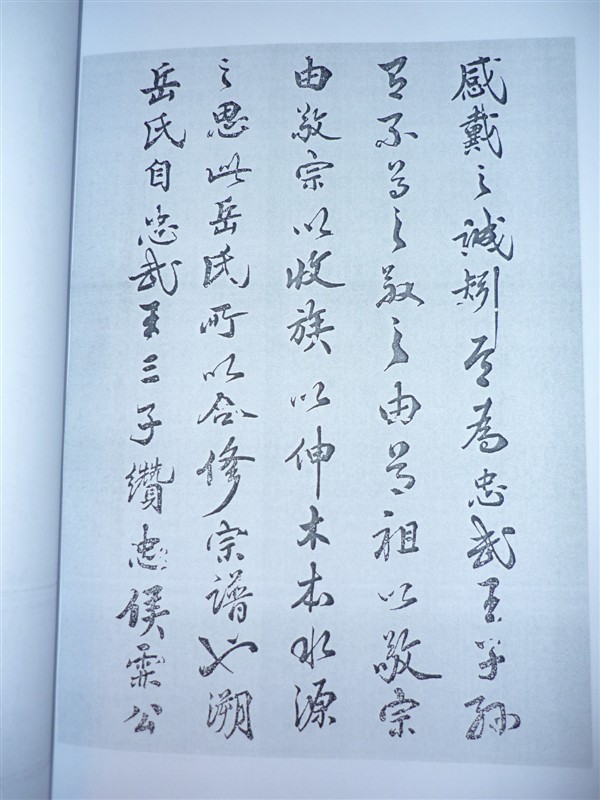 感戴之誠矧為忠武王子孫
不尊之敬之由尊祖以敬宗
由敬宗以收族以伸木本水源
之思此岳氏所以合修宗譜也溯
岳氏自忠武王三子纘忠侯霖公